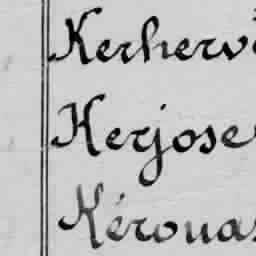 Kerhervé
Kerjose
Kérouas